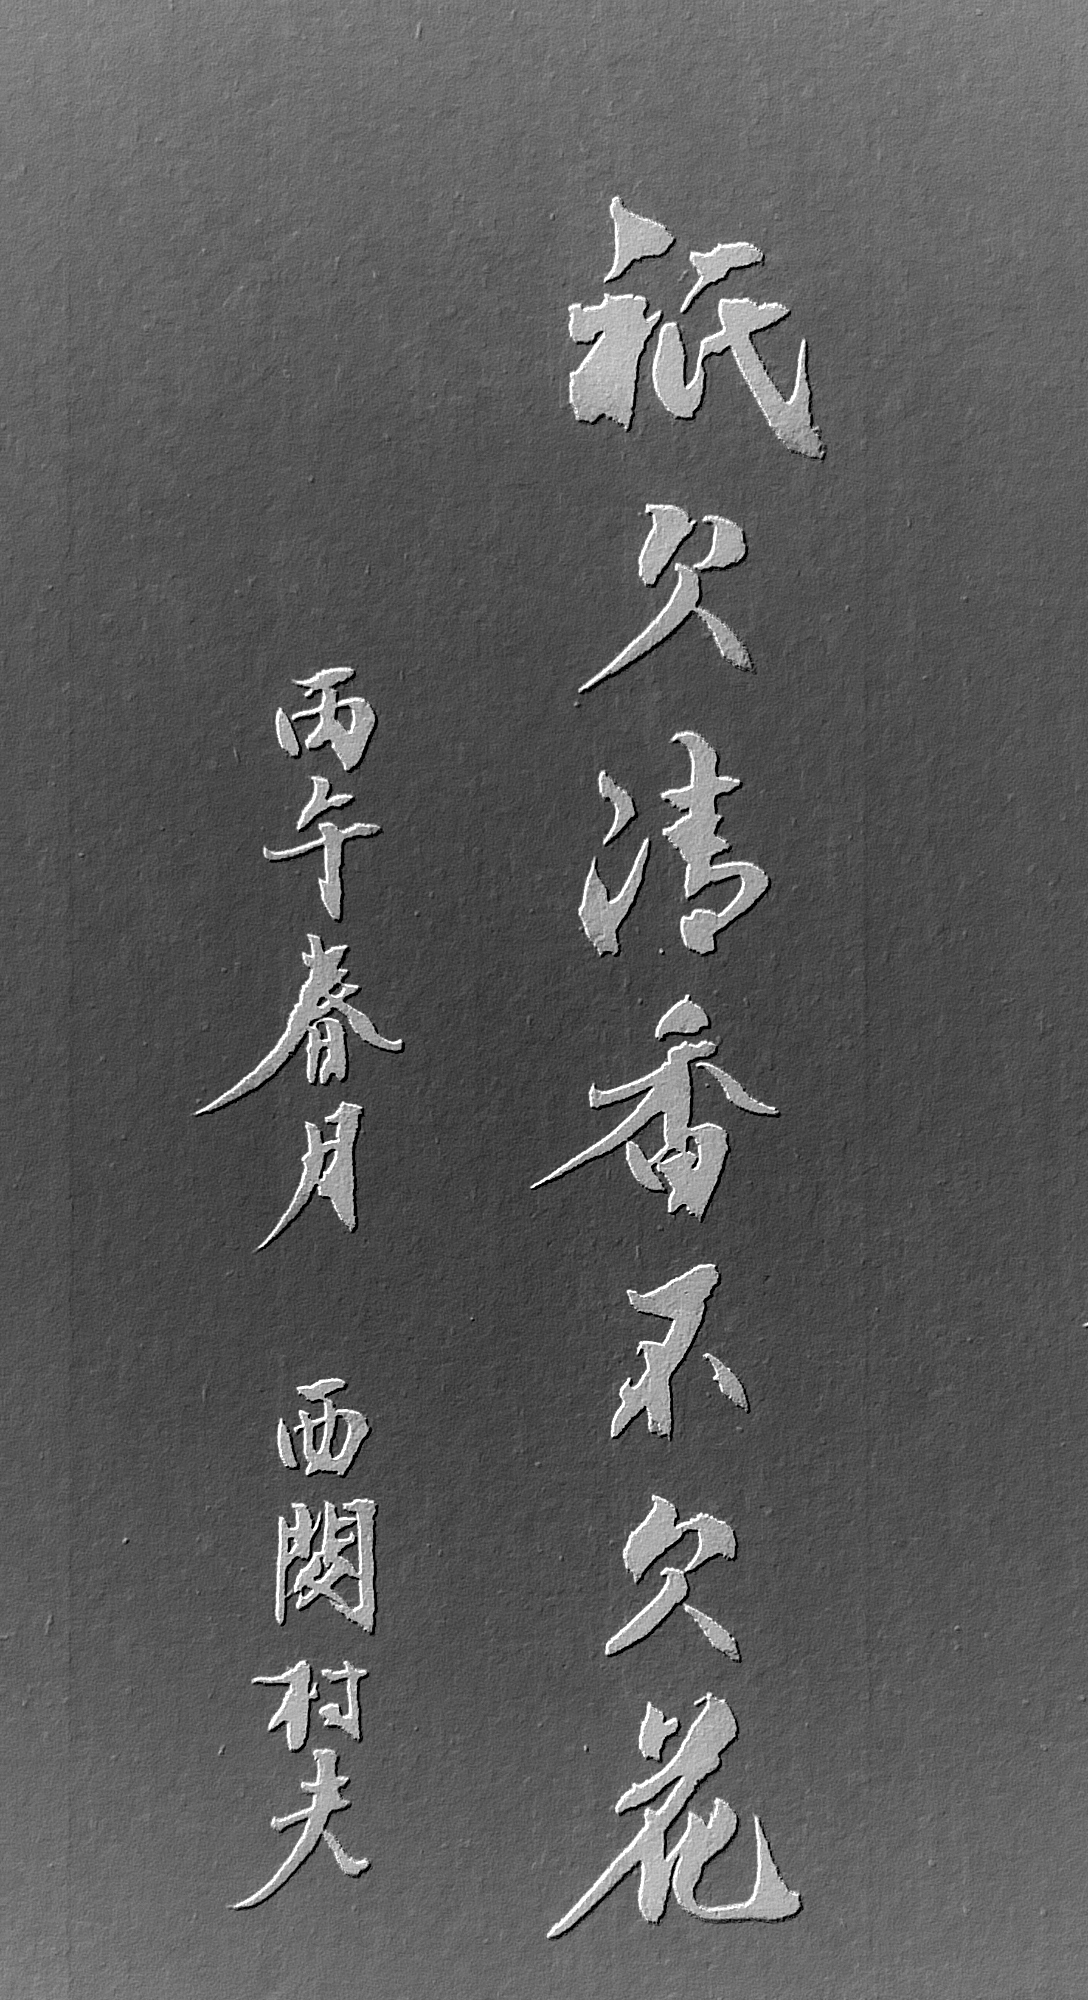 祇欠清香不欠花
丙午春月 西閣村夫